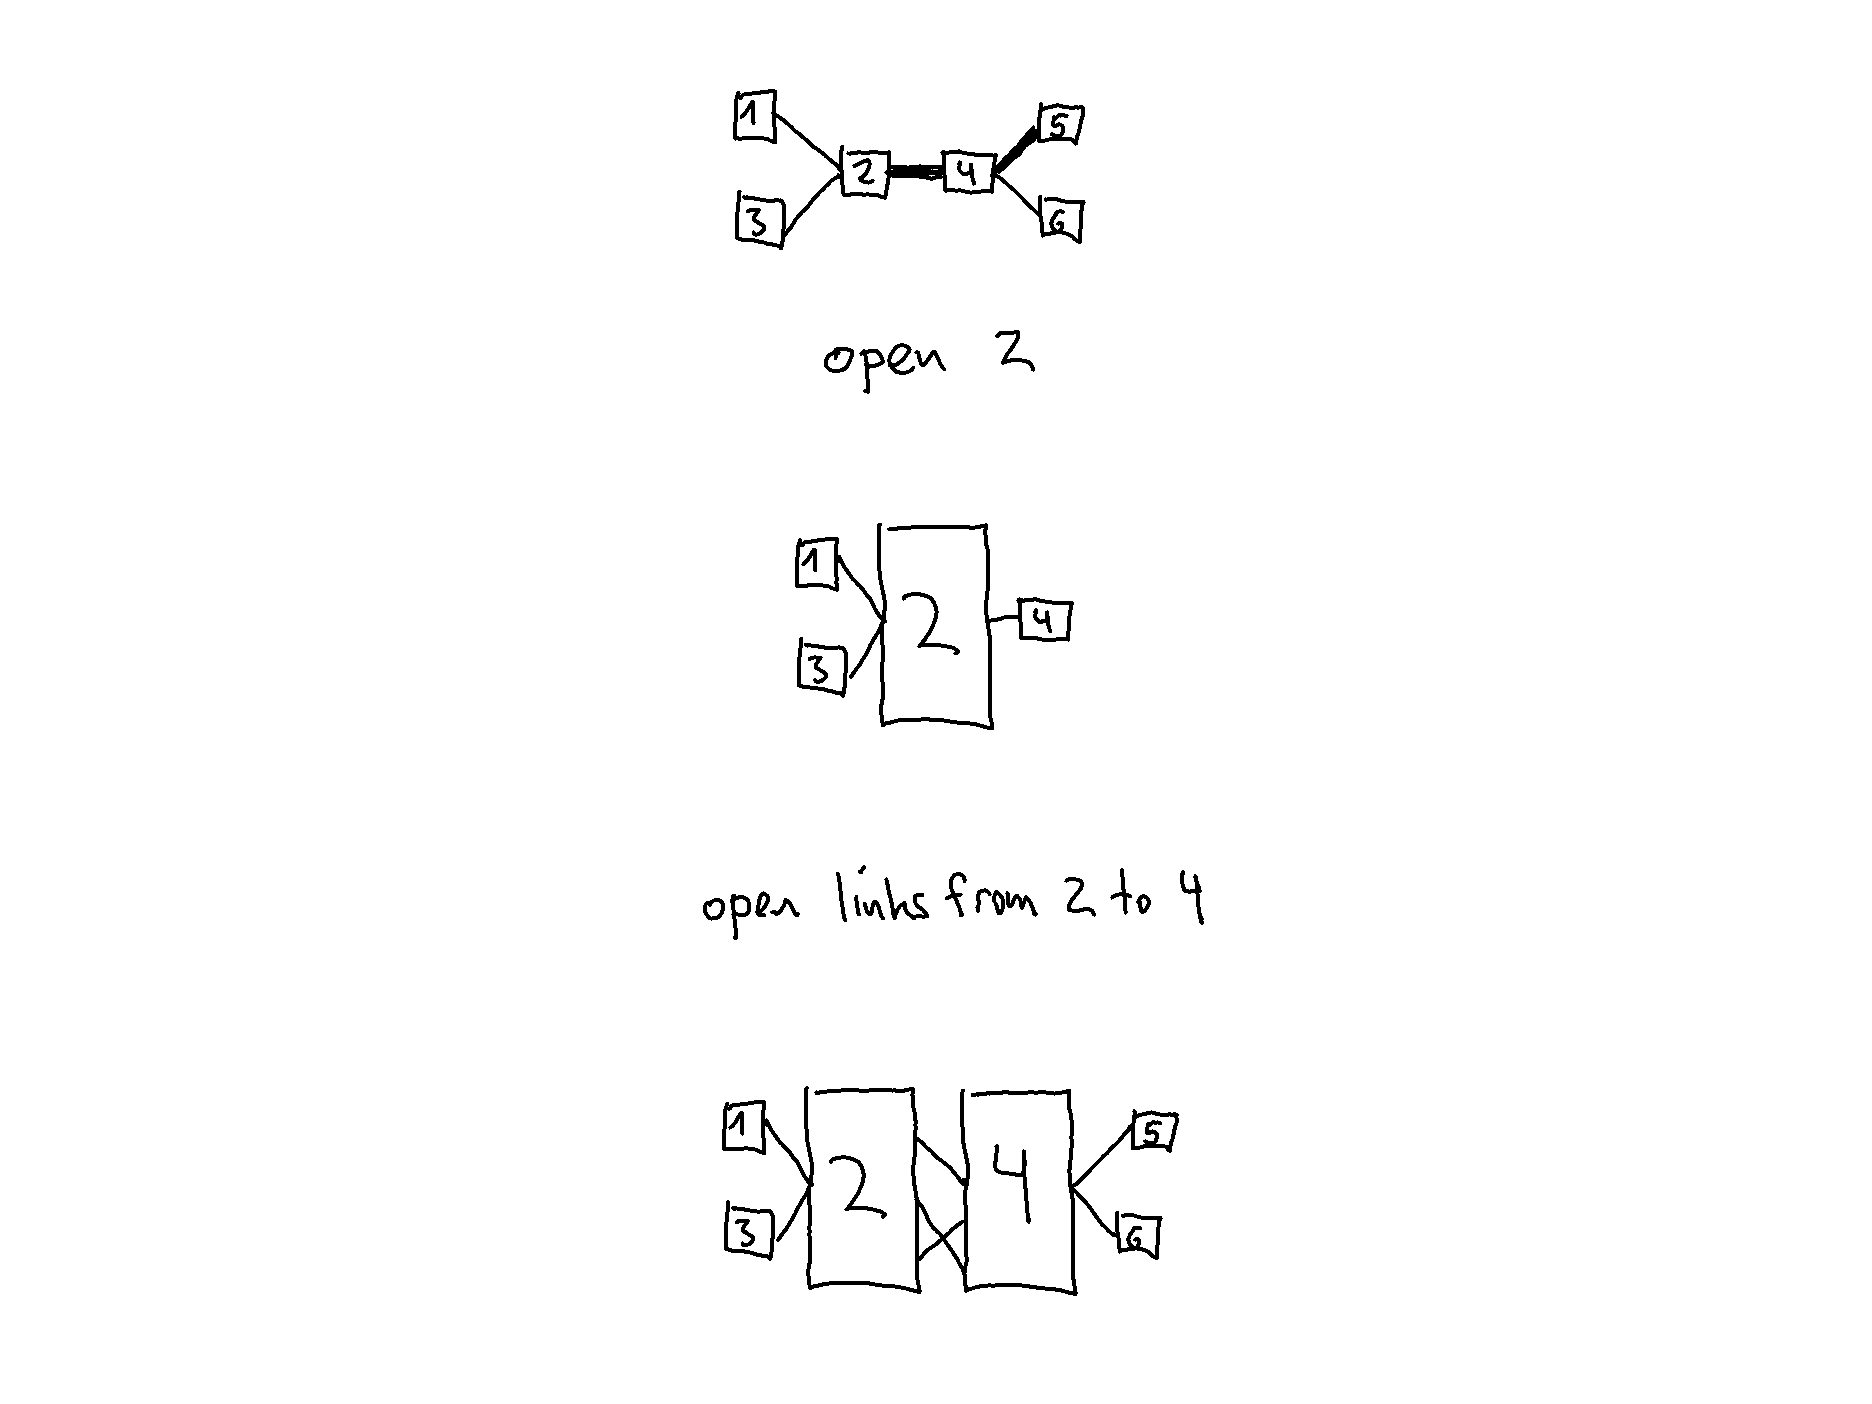 1
5
2 4
3 6
open 2
1
2 4
3
open links from 2 to 4
1 5
2 4
3 6